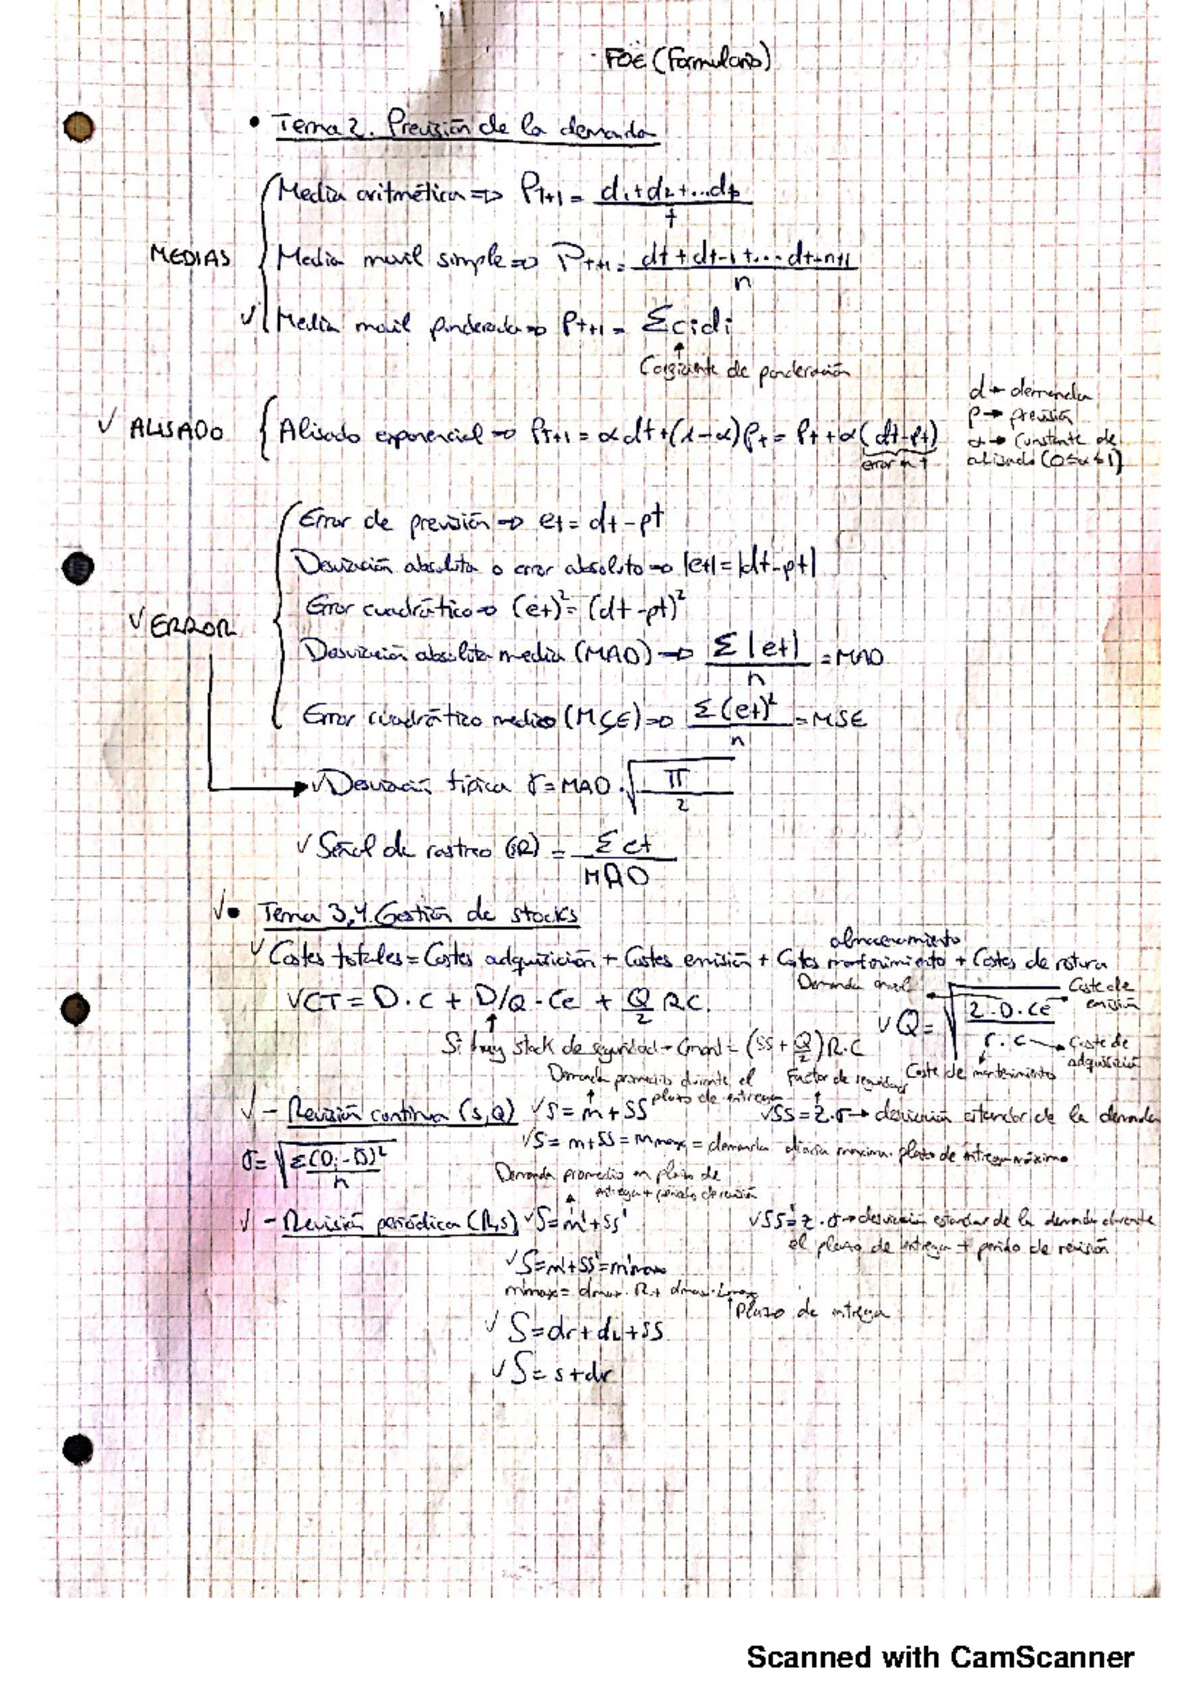 FOE (Formulario)
• Tema 2. Previsión de la demanda
MEDIAS
Media aritmética => Pt+1 = d1+d2+...dt / t
Media movil simple => Pt+1 = dt+dt-1+...dt-n+1 / n
√ Media movil ponderada => Pt+1 = Σcidi
Coeficiente de ponderación
√ ALISADO
Alisado exponencial => Pt+1 = αdt+(1-α)Pt = Pt+α(dt-Pt)
error en t
d → demanda
p → previsión
α → Constante de
alisado (0≤α≤1)
√ ERROR
Error de previsión => et = dt-pt
Desviación absoluta o error absoluto => |et| = |dt-pt|
Error cuadrático => (et)² = (dt-pt)²
Desviación absoluta media (MAD) => Σ|et| / n = MAD
Error cuadrático medio (MSE) => Σ(et)² / n = MSE
√ Desviación típica σ = MAD · √(π/2)
√ Señal de rastreo (SR) = Σet / MAD
√ • Tema 3,4. Gestión de stocks
almacenamiento
√ Costes totales = Costes adquisición + Costes emisión + Costes mantenimiento + Costes de rotura
√ CT = D·C + D/Q·Ce + Q/2 RC.
Demanda anual
Coste de emisión
√ Q = √(2·D·Ce / r·c)
Coste de adquisición
Coste de mantenimiento
Si hay stock de seguridad → Cmant = (SS+Q/2)R·C
Demanda promedio durante el
plazo de entrega
Factor de seguridad
√ - Revisión continua (s,Q) √ S = m+SS
√ SS = z·σ → desviación estandar de la demanda
√ S = m+SS = mmax = demanda diaria maxima · plazo de entrega máximo
σ = √(Σ(Di-D̄)² / n)
Demanda promedio en plazo de
entrega + periodo de revisión
√ - Revisión periódica (R,s) √ S = m'+SS'
√ SS' = z·σ → desviación estandar de la demanda durante
el plazo de entrega + periodo de revisión
√ S = m'+SS' = m'max
m'max = dmax·R+dmax·Lmax
Plazo de entrega
√ S = dr+dL+SS
√ S = s+dr
Scanned with CamScanner